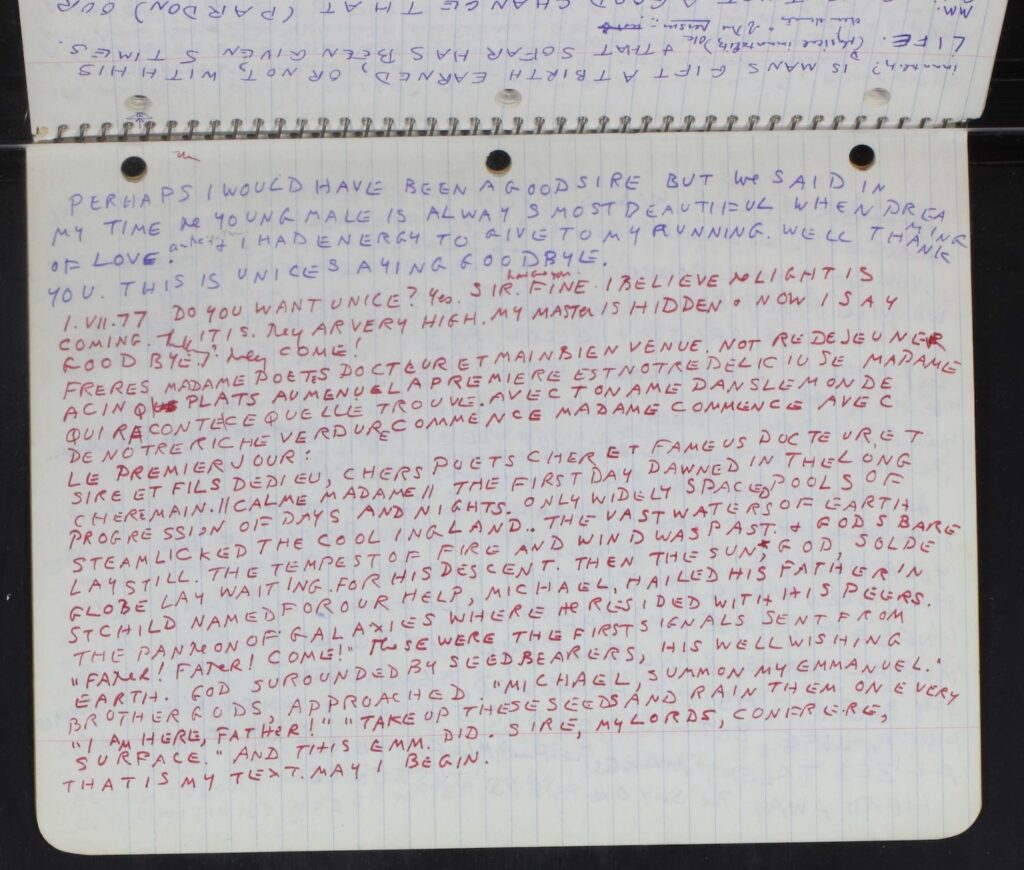 IS MANS GIFT AT BIRTH EARNED, OR NOT, WITH HIS
LIFE. (Physical immortality) + THAT SOFAR HAS BEEN GIVEN 5 TIMES.
A GOOD CHANGE THAT (PARDON) OUR
MM.
PERHAPS I WOULD HAVE BEEN A GOOD SIRE BUT WE SAID IN
MY TIME he YOUNG MALE IS ALWAYS MOST BEAUTIFUL WHEN DREAMING
OF LOVE. I HAD ENERGY TO GIVE TO MY RUNNING. WELL THANK
YOU. THIS IS UNICE SAYING GOODBYE.
1.VII.77 DO YOU WANT UNICE? Yes. SIR. FINE. I BELIEVE he LIGHT IS
COMING. IT IS. hey AR VERY HIGH. MY MASTER IS HIDDEN & NOW I SAY
GOOD BYE. hey COME!
FRERES MADAME POETES DOCTEUR ET MAIN BIENVENUE. NOTRE DEJEUNER
A CINQ PLATS AU MENU EL A PREMIERE EST NOTRE DELICIUSE MADAME
QUI RACONTE CE QUELLE TROUVE. AVEC TON AME DANS LE MONDE
DE NOTRE RICHE VERDURE COMMENCE MADAME COMMENCE AVEC
LE PREMIER JOUR:
SIRE ET FILS DE DIEU, CHERS POETS CHER ET FAMEUS DOCTEUR, ET
CHERE MAIN. // CALME MADAME // THE FIRST DAY DAWNED IN THE LONG
PROGRESSION OF DAYS AND NIGHTS. ONLY WIDELY SPACED POOLS OF
STEAM LICKED THE COOLING LAND. THE VAST WATERS OF EARTH
LAY STILL. THE TEMPEST OF FIRE AND WIND WAS PAST. & GODS BARE
GLOBE LAY WAITING FOR HIS DESCENT. THEN THE SUN, GOD, S OLDE
ST CHILD NAMED FOR OUR HELP, MICHAEL, HAILED HIS FATHER IN
THE PANheON OF GALAXIES WHERE HE RESIDED WITH HIS PEERS.
"FATher! FATher! COME!" These WERE THE FIRST SIGNALS SENT FROM
EARTH. GOD SUROUNDED BY SEEDBEARERS, HIS WELL WISHING
BROTHER GODS, APPROACHED. "MICHAEL, SUMMON MY EMMANUEL."
"I AM HERE, FATHER!" "TAKE UP THESE SEEDS AND RAIN THEM ON EVERY
SURFACE." AND THIS EMM. DID. SIRE, MY LORDS, CONFRERE,
THAT IS MY TEXT. MAY I BEGIN.